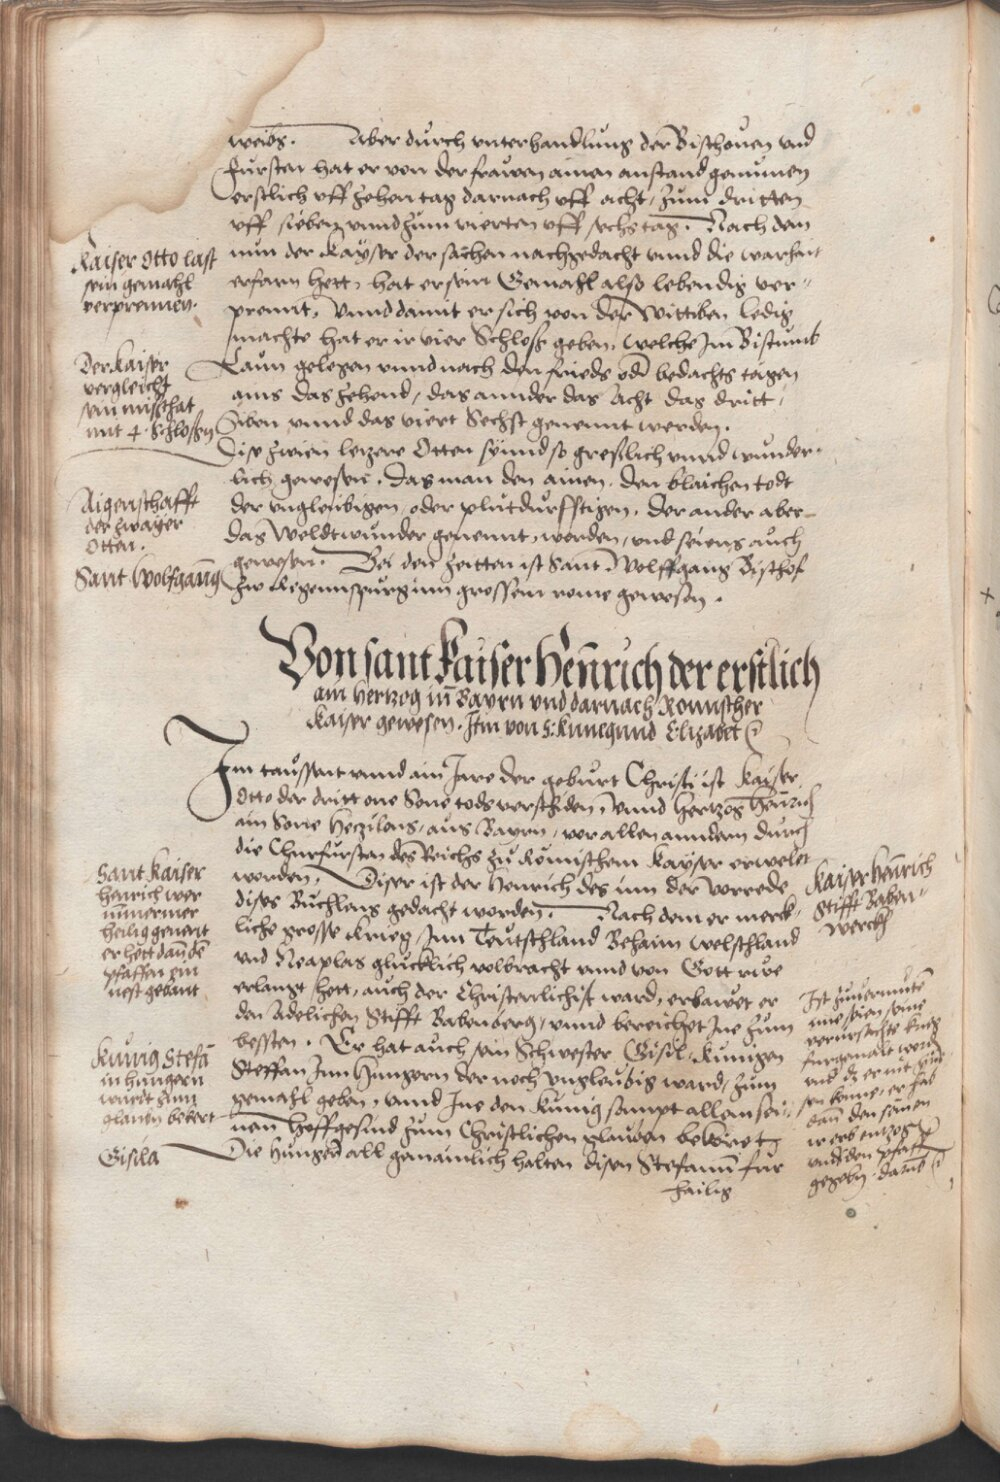 weibs. Aber durch unterhandlung der Bischoven und
Fürsten hat er von der frawen ainen anstand genumen
erstlich uff zehen tag darnach uff acht, zum dritten
uff sieben unnd zum vierten uff sechs tag. Nach dem
nun der Kayser der sachen nachgedacht unnd die warheit
erfarn hett, hat er sein Gemahl also lebendig ver-
prennt, Unnd damit er sich von der Wittiben ledig
machte hat er ir vier Schloß geben, welche Im Bistumb
Laun gelegen unnd nach den frieds odr bedachts tagen
ains das Zehend, das annder das Acht das dritt,
Siben unnd das viert Sechst genennt werden.
Kaiser Otto last
sein gemahl
verprennen.
Der Kaiser
vergleicht
sein missthat
mit 4. Schlossen
Dise zwien letzere Otten seinnd so greslich unnd wunder-
lich gewesen, das man den ainen, den blaichen todt
der ungleubigen, oder plutdurfftigen, der ander aber-
das Weldtwunder genennt, worden, und seiens auch
gewesen. Bei den Zeitten ist Sant Wolffgang Bischof
Zw Regennspurg inn grossem rome gewesen.
Aigenschafft
der zwayer
Otten.
Sant Wolfgang
Von sant Kaiser Henrich der erstlich
ain Hertzog in Bayrn und darnach Romischer
Kaiser gewesen. Item von S: Kunegund Elizabet
Im taussent unnd ain Jare der geburt Christi ist Kaiser
Otto der dritt one Sone tods verschiden, Unnd Hertzog Henrich
ain Sone Hezilons, aus Bayrn, vor allen anndern durch
die Churfursten des Reichs zu Römischem Kayser erwelet
worden, Diser ist der Henrich des inn der Vorrede
dises Buchlens gedacht worden. Nach dem er merck-
liche grosse Krieg, Inn Teutschland Behaim Welschland
und Neaplas glucklich volbracht unnd von Gott rwe
erlangt hett, auch der Christenlichist ward, erbawet er
den Adelichen Stifft Babenberg, unnd bereichet Ine zum
bessten. Er hat auch sein Schwester Gisil, Kunigen
Steffan Inn Hungern der noch ungleubig ward, zum
gemahl geben, unnd Ine den Kunig sampt allen sei-
nen Hoffgesind zum Christlichen glauben bekeret
Die Hungern all gemainlich halten disen Stefanum fur
heilig
Sant Kaiser
Heinrich wer
nimmermer
heilig genent
er hett dann den
pfaffen ein
nest gebaut
Kunig Stefan
in hungern
wurdt zum
glauben bekert
Gisila
Kaiser Henrich
Stifft Baben-
werch
Ist zuvermuten